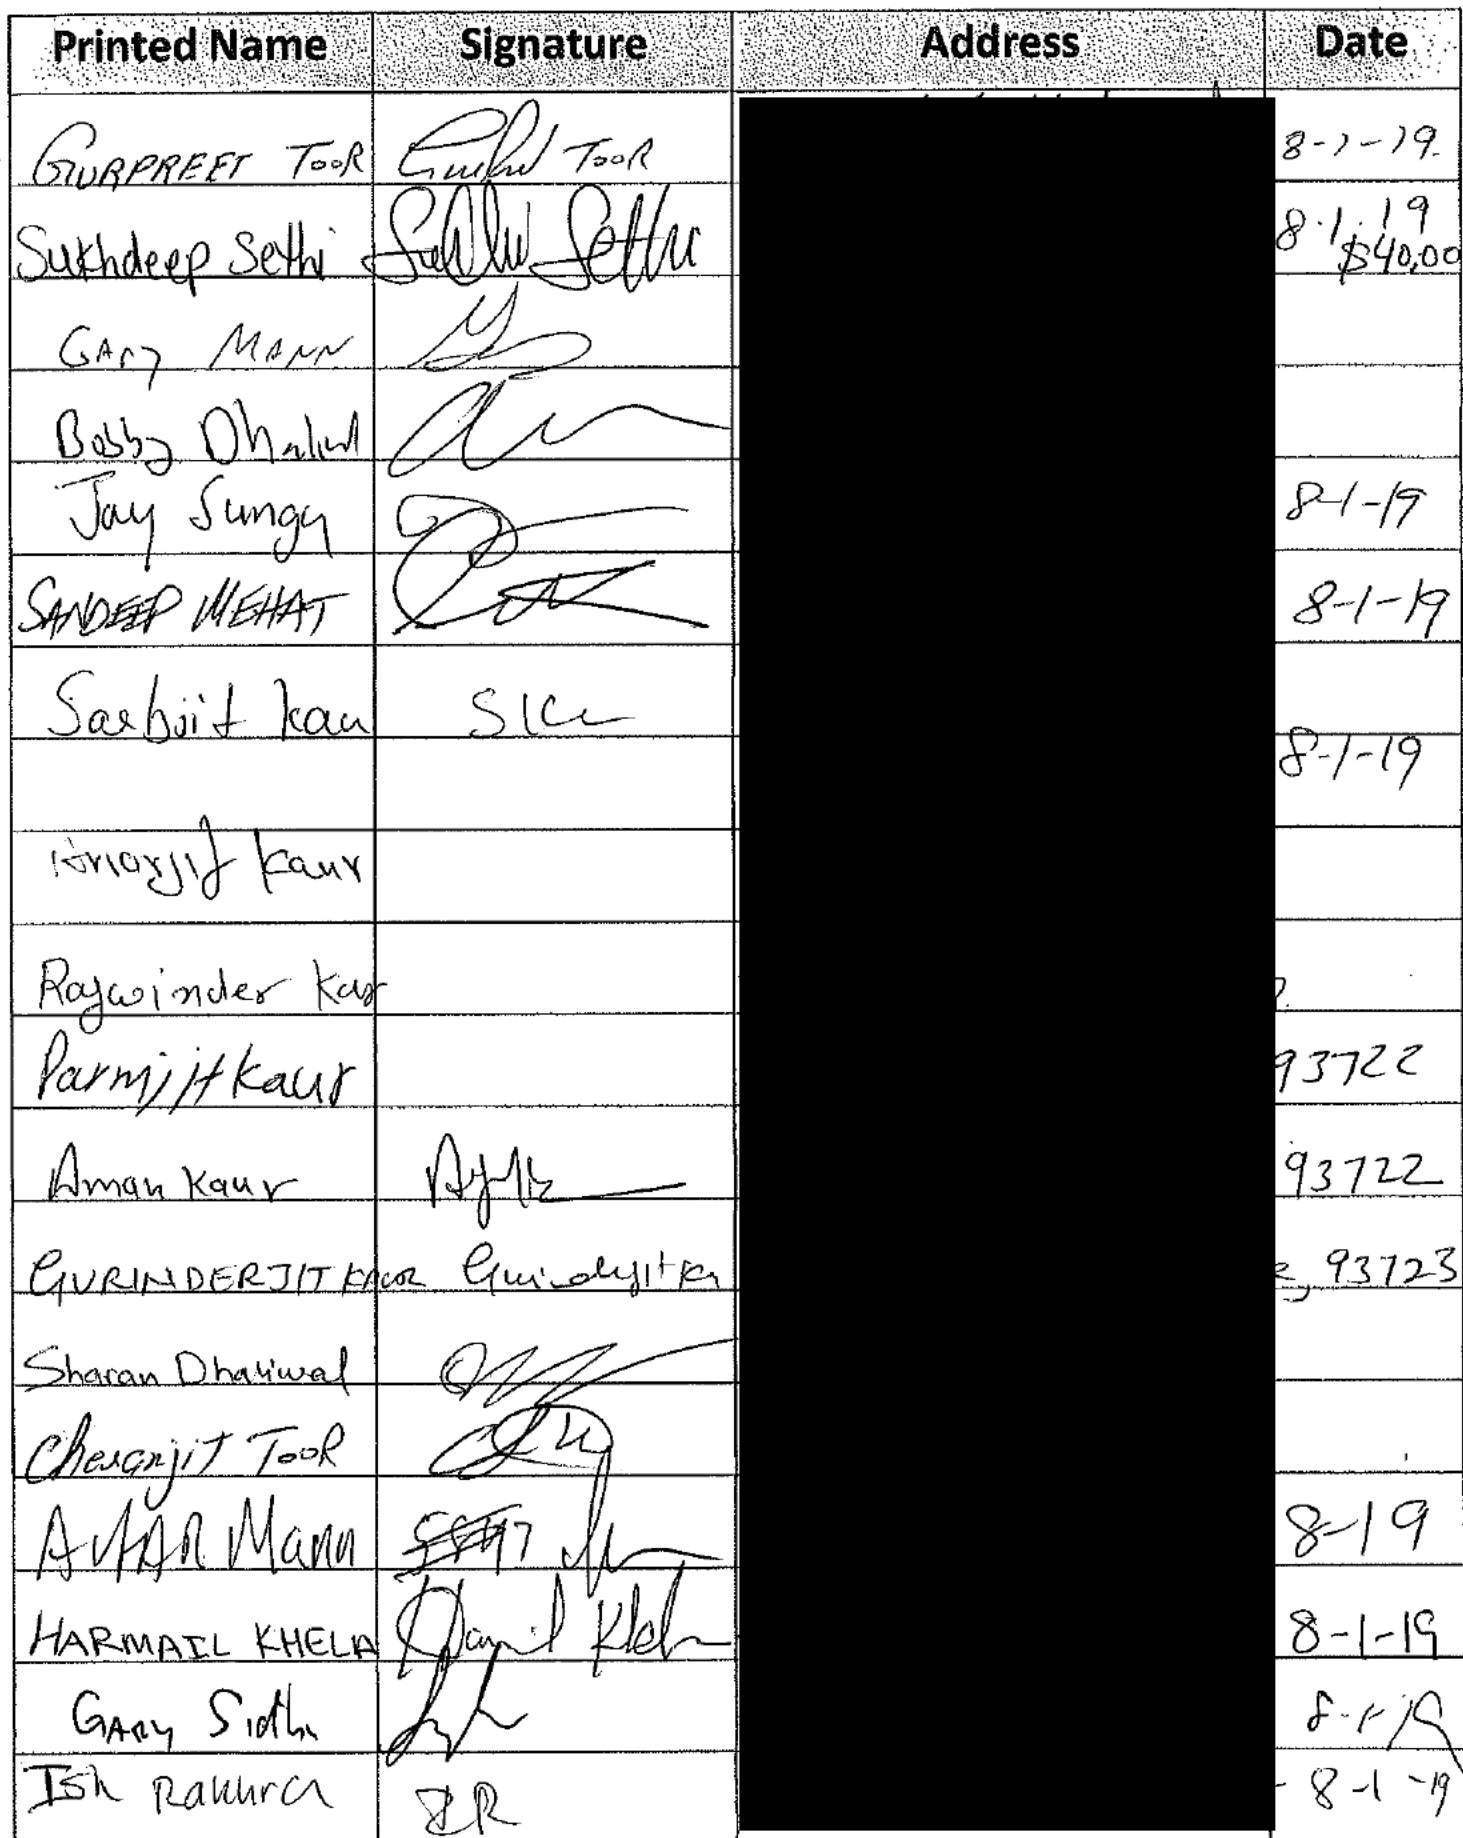 Printed Name Signature Address Date
GURPREET TOOR TOOR 8-1-19.
Sukhdeep Sethi Sukhi Sethi 8.1.19
$40,00
GARY MANN
Bobby Dhaliwal
Jay Sungy 8-1-19
SANDEEP MEHAT 8-1-19
Sarbjit Kau SK
8-1-19
Kaur
Rajwinder Kar
Parmjit Kaur 93722
Aman Kaur 93722
GURINDERJIT KAUR Gurinderjit Kr 93723
Sharan Dhaliwal
Cheranjit TOOR
AVTAR Mann 8-19
HARMAIL KHELA Harmail Khela 8-1-19
GARY Sidhu 8-1-19
Ish Rakhra IR 8-1-19